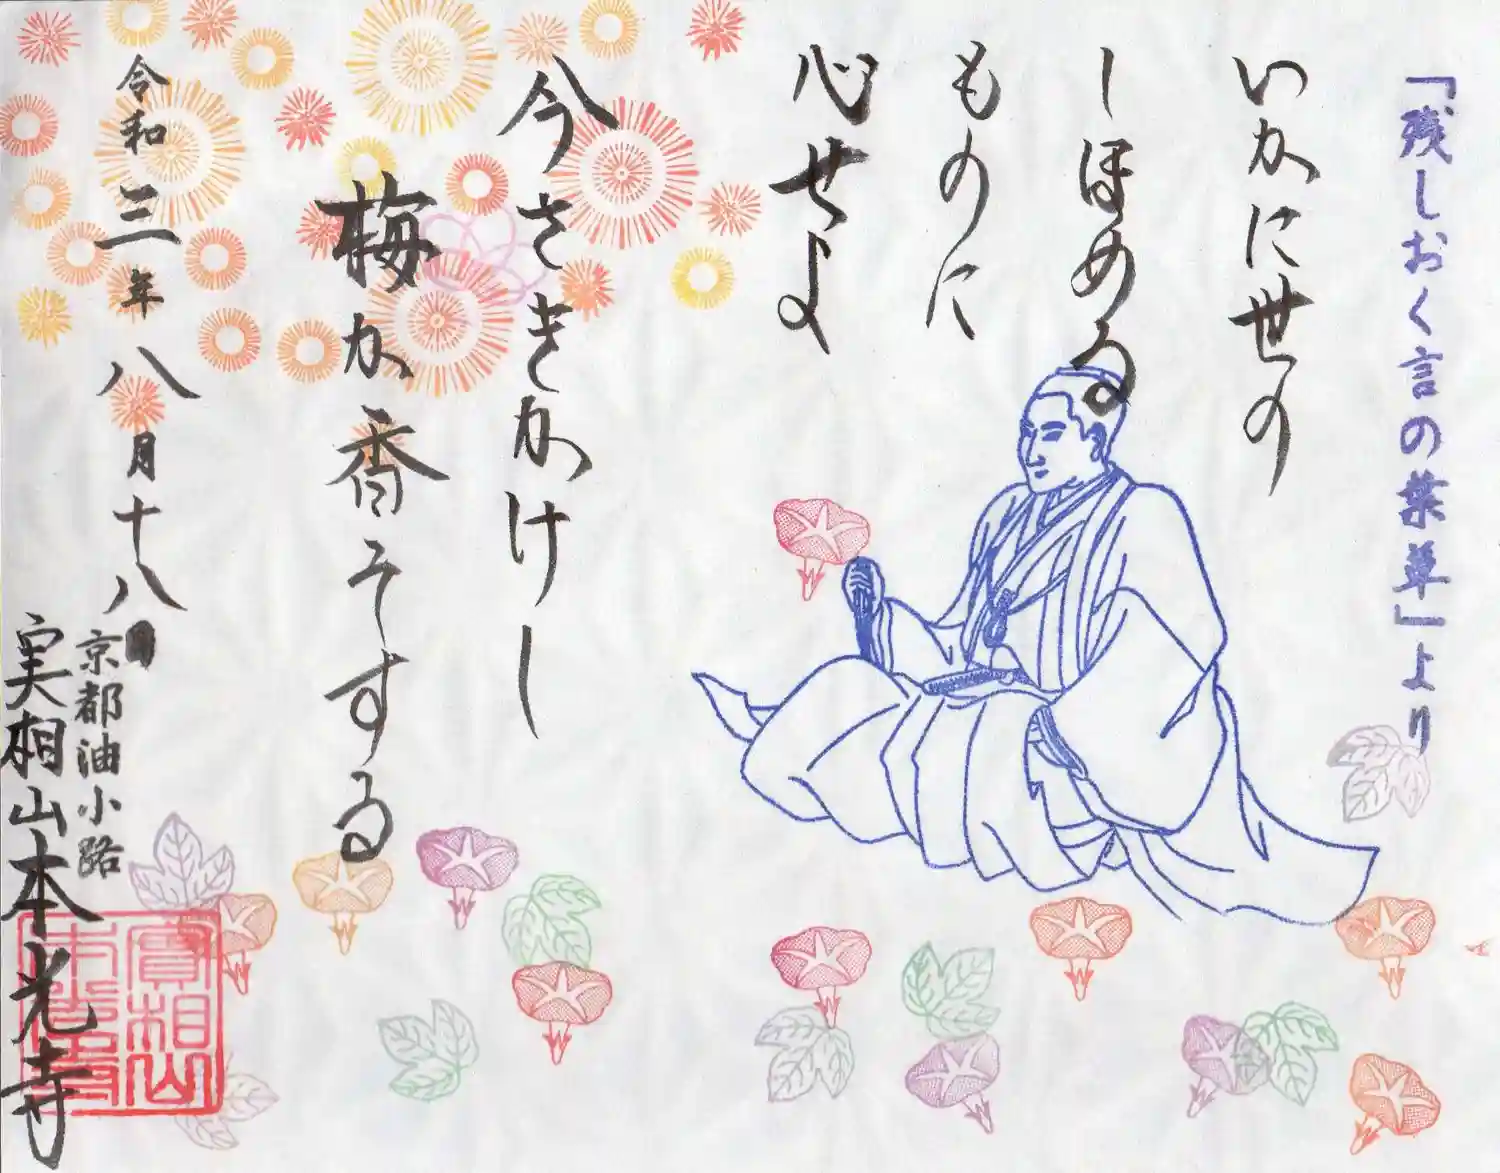 「残しおく言の葉草」より
いかに世の
しほめる
ものに
心せよ
今さきかけし
梅か香そする
令和三年八月十八
京都油小路
実相山本光寺
實相山
本光寺